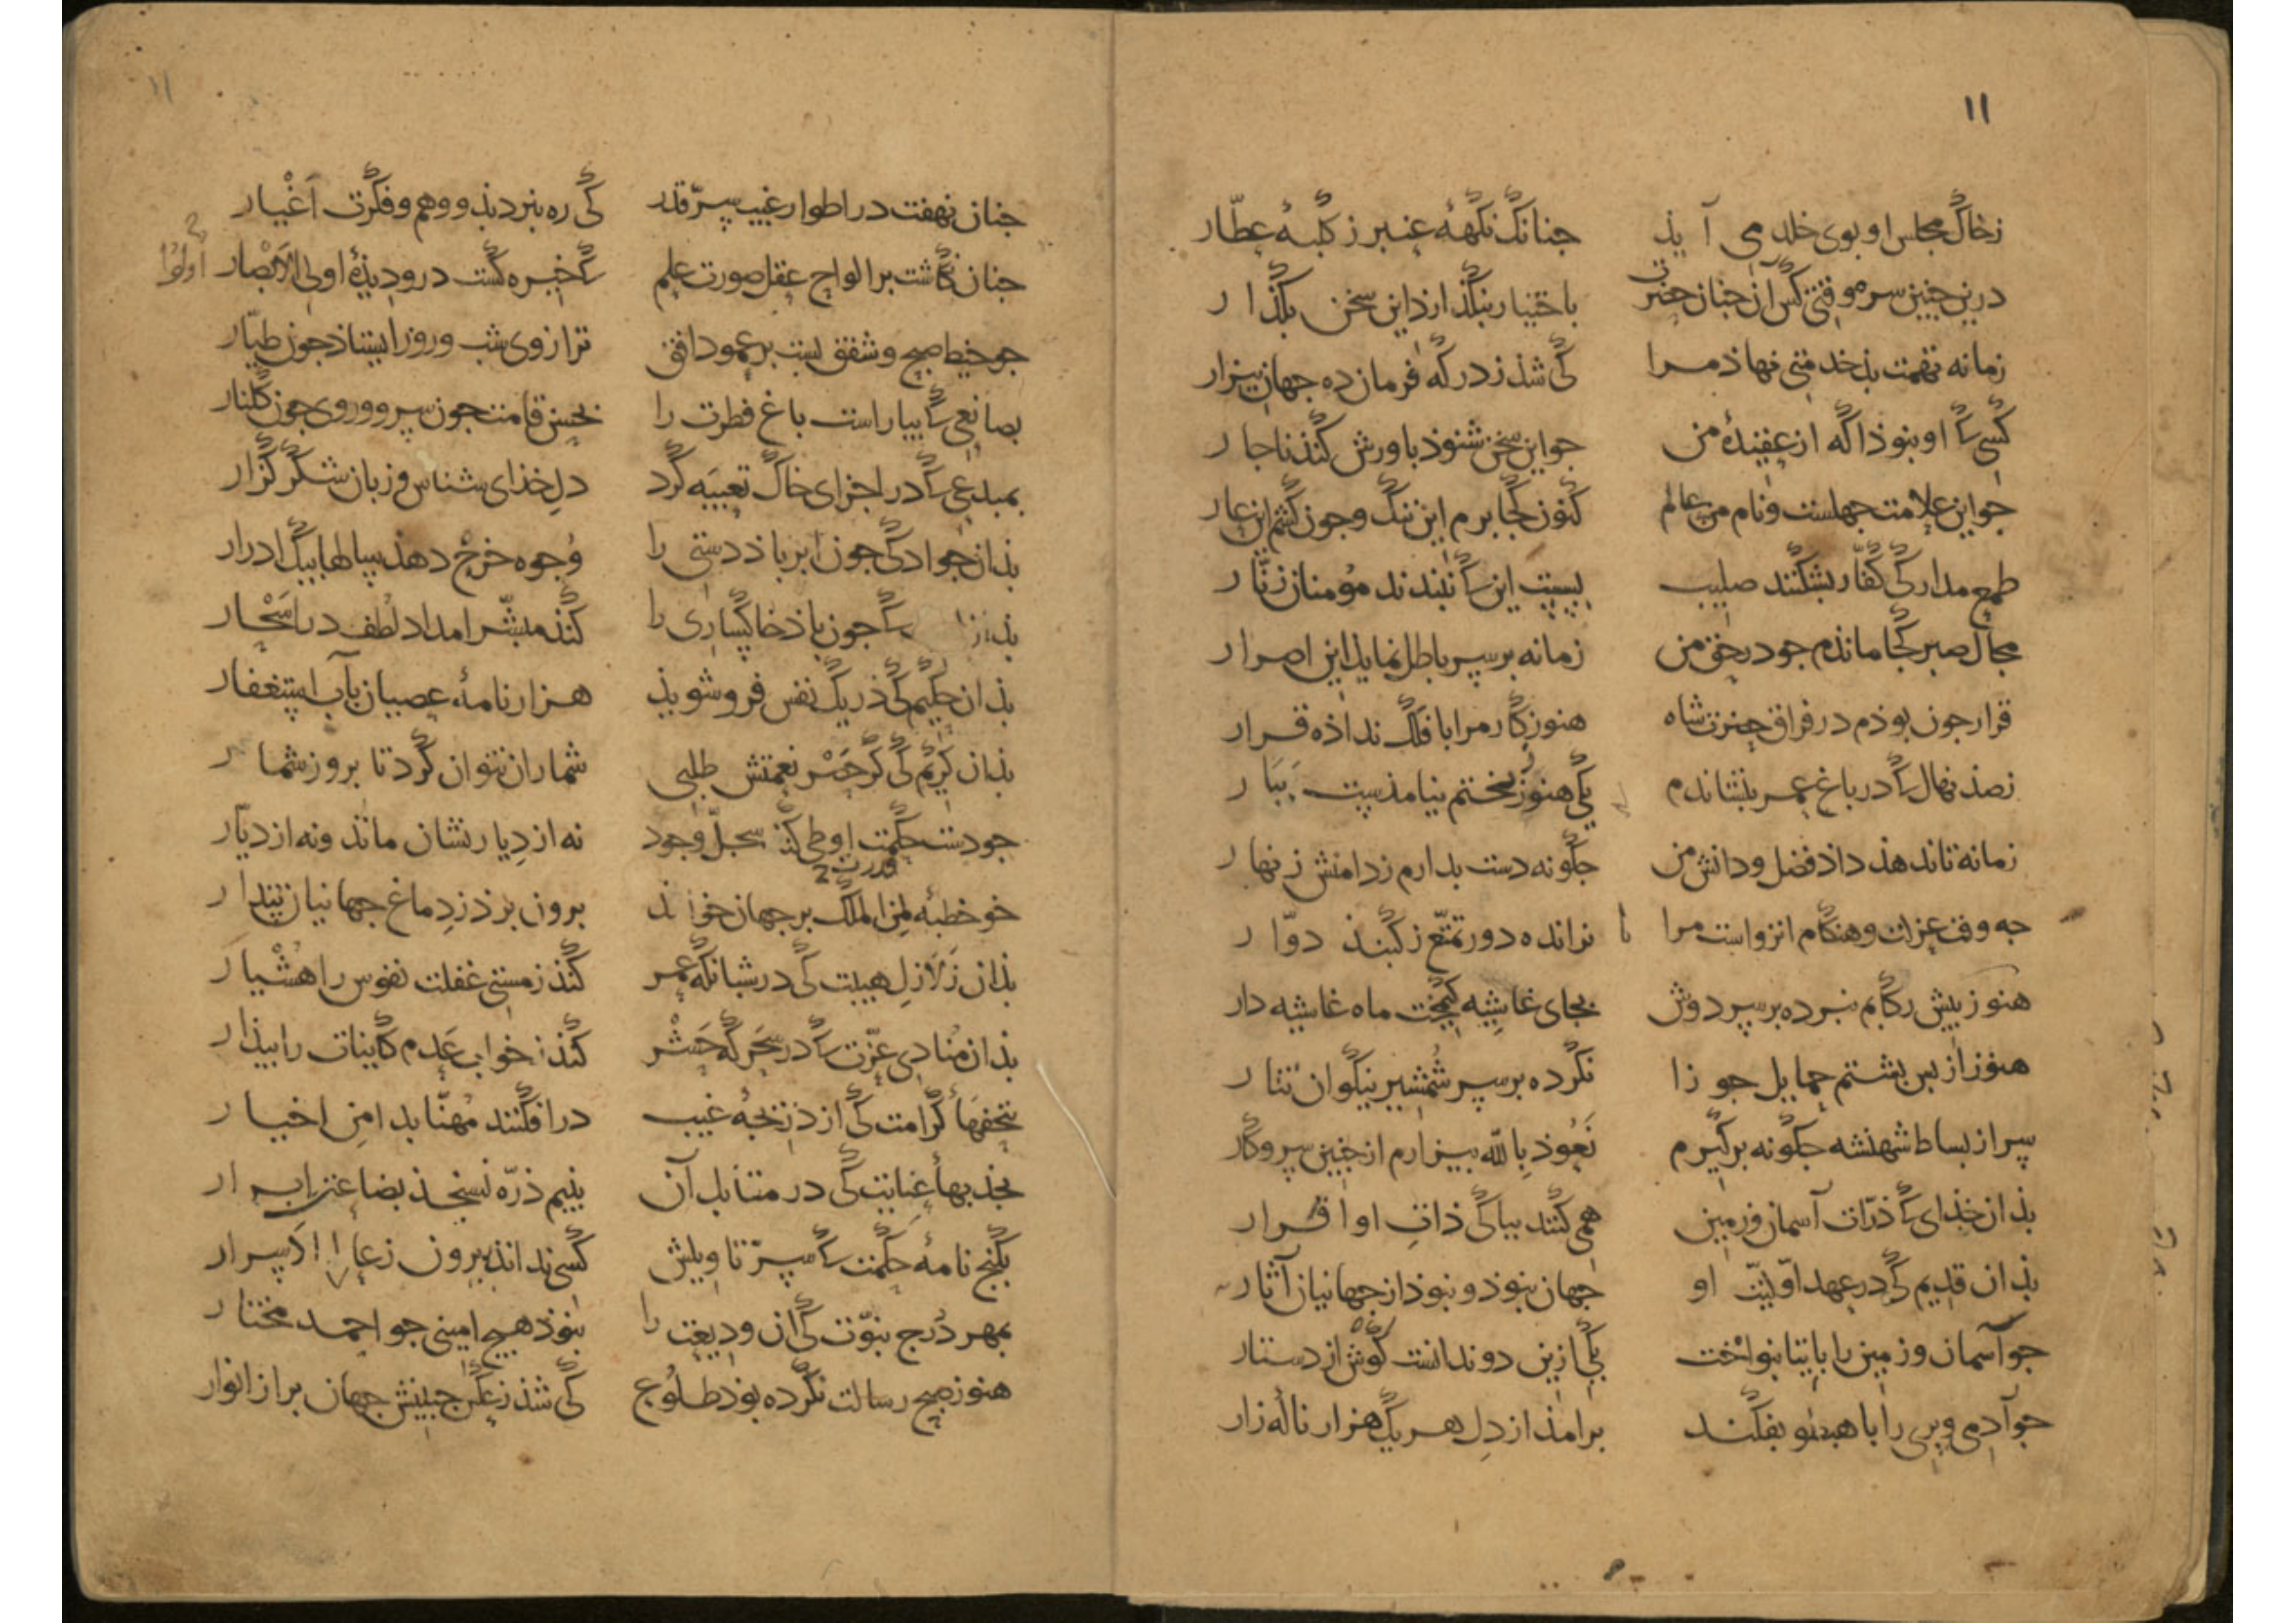 ۱۱
زخاک مجلس او بوی خلد می آید جنانک نکهة عنبر ز کلبهٔ عطّار
درین جنین سر موقتی کس از جنان حضرت باختیار بنکذارد این سخن بکذار
زمانه تهمت بذخدمتی نهاذ مرا کی شذ ز درکه فرمان ده جهان بیزار
کسی کا او بنوذ اکه از عقیدهٔ من جو این سخن شنوذ باورش کند ناجار
جو این علامت جهلست و نام من عالم کنون کجا برم این ننک و جون کشم این عار
طمع مدار کی کفّار بشکنند صلیب ببست این کا نبندند مؤمنان زنّار
مجال صبر کجا ماندم جو در حق من زمانه بر سر باطل نماید این اصرار
قرار جون بوذم در فراق حضرت شاه هنوز کار مرا با فلک نداذه قرار
ز صذ نهال کا در باغ عمر بنشاندم یکی هنوز ز بختم نیامذست ببار
زمانه تا ندهذ داذ فضل و دانش من جکونه دست بدارم ز دامنش زنهار
جه وقت عزلت و هنکام انزواست مرا نرانده دور تمتّع ز کنبذ دوّار
هنوز بیش رکابم نبرده بر سر دوش بجای غاشیه کیمخت ماه غاشیه دار
هنوز از بس بشتم حمایل جوزا نکرده بر سر شمشیر نیکوان نثار
سر از بساط شهنشه جکونه برکیرم نعوذ بالله بیزارم از جنین سر و کار
بذان خذای کا ذرّات آسمان و زمین همی کنند بباکی ذات او اقرار
بذان قدیم کی در عهد اوّلیّت او جهان نبوذ و نبوذ از جهانیان آثار
جو آسمان و زمین را بابیتا بنواخت یکی ازین دو ندانست کوش از دستار
جو آدمی و بری را با هبطو بفکند برامذ از دل هر یک هزار نالهٔ زار
۱۱
جنان نهفت در اطوار غیب سرّ قدر کی ره نبرد بذو وهم و فکرت اغیار
جنان نکاشت بر الواح عقل صورت علم کا خیره کشت درو دیذهٔ اولی الابصار
أولوا
جو خیط صبح و شفق بست بر عمود افق ترازوی شب و روز ایستاذ جون طیّار
بصانعی کا بیاراست باغ فطرت را بحسن قامت جون سرو و روی جون کلنار
بمبدعی کا در اجزای خاک تعبیه کرد دل خذای شناس و زبان شکر کزار
بذان جواد کی جون ابر باذ دستی را وجوه خرج دهذ سالها بیک ادرار
بذان کا جون باذ خاکساری را کند مبشّر امداد لطف در اسحار
بذان حکیم کی در یک نفس فرو شویذ هزار نامهٔ عصیان بآب استغفار
بذان کریم کی کر حصر نعمتش طلبی شمار آن نتوان کرد تا بروز شمار
جو دست حکمت او طی کند سجلّ وجود نه از دیار نشان ماند و نه از دیّار
قدرت
جو خطبهٔ لمن الملک بر جهان خواند برون برذ ز دماغ جهانیان بندار
بذان زلازل هیبت کی در شبانکه عمر کند ز مستی غفلت نفوس را هشیار
بذان منادی عزّت کا در سحرکه حشر کند ز خواب عدم کاینات را بیذار
بتحفهاء کرامت کی از دریجهٔ غیب درافکنند مهنّا بدامن اخیار
بجذبهاء عنایت کی در مقابل آن بنیم ذرّه نسنجذ بضاعت ابرار
بکنج نامهٔ حکمت کا سرّ تاویلش کسی نداند بیرون ز عالم الاسرار
بمهر درج نبوّت کی آن ودیعت را نبوذ هیج امینی جو احمد مختار
هنوز صبح رسالت نکرده بوذ طلوع کی شذ ز عکس جبینش جهان بر از انوار